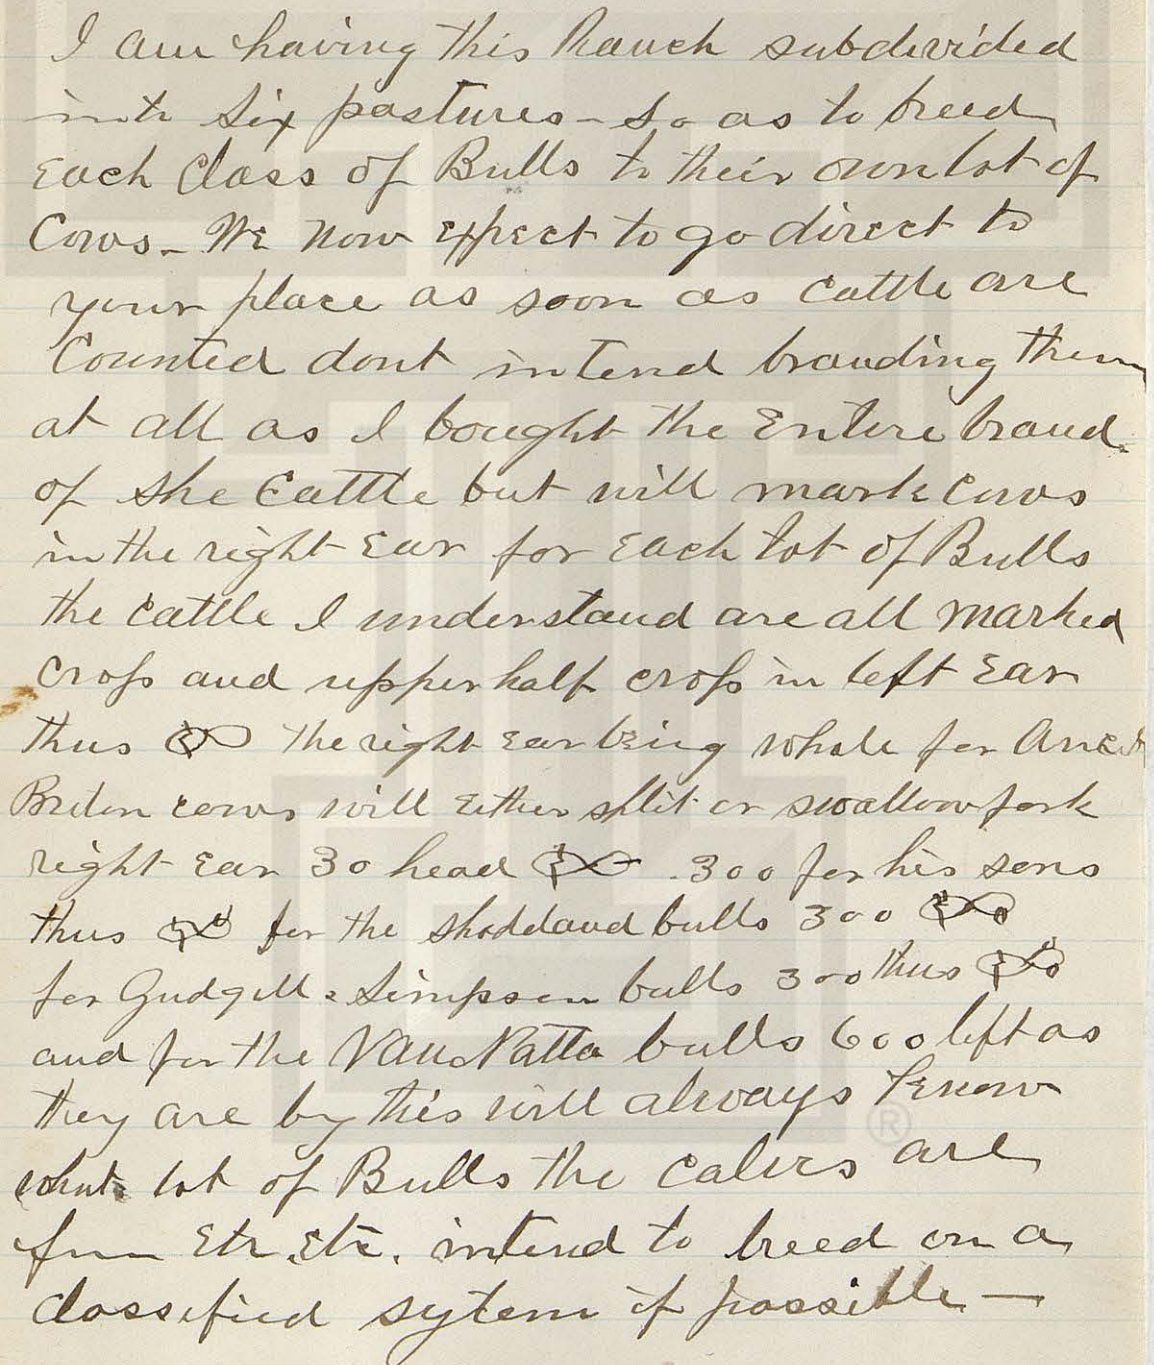 I am having this Ranch subdivided
into six pastures - so as to breed
Each Class of Bulls to their own lot of
Cows - We now Expect to go direct to
your place as soon as Cattle are
Counted dont intend branding them
at all as I bought the Entire brand
of she Cattle but will mark Cows
in the right Ear for Each lot of Bulls
the Cattle I understand are all marked
Crop and upper half Crop in left Ear
thus the right Ear being whole for
cows will Either split or swallow fork
right Ear 30 head . 300 for his sons
thus for the bulls 300
for Gudgell & Simpson bulls 300 thus
and for the Van Natta bulls 600 left as
they are by this will always know
what lot of Bulls the Calves are
from Etc. Etc. intend to breed on a
classified sytem if possible —